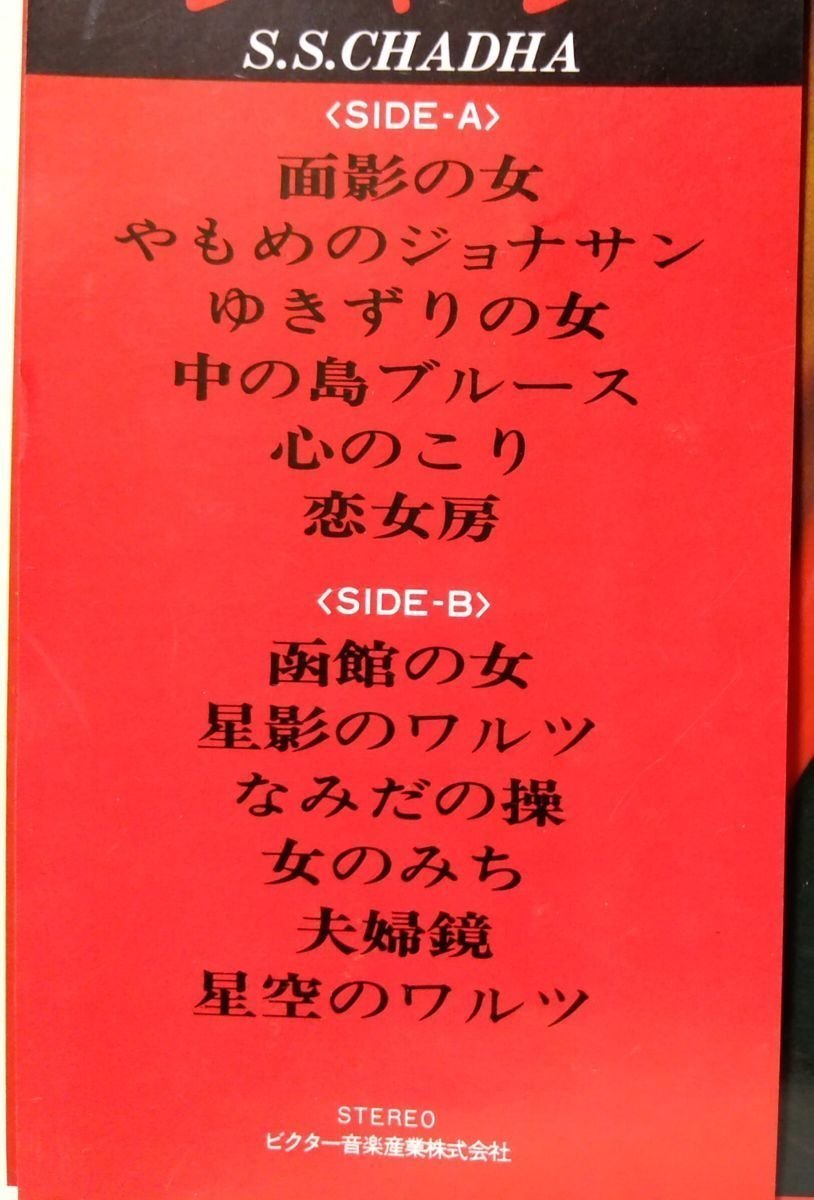 S.S.CHADHA
〈SIDE-A〉
面影の女
やもめのジョナサン
ゆきずりの女
中の島ブルース
心のこり
恋女房
〈SIDE-B〉
函館の女
星影のワルツ
なみだの操
女のみち
夫婦鏡
星空のワルツ
STEREO
ビクター音楽産業株式会社